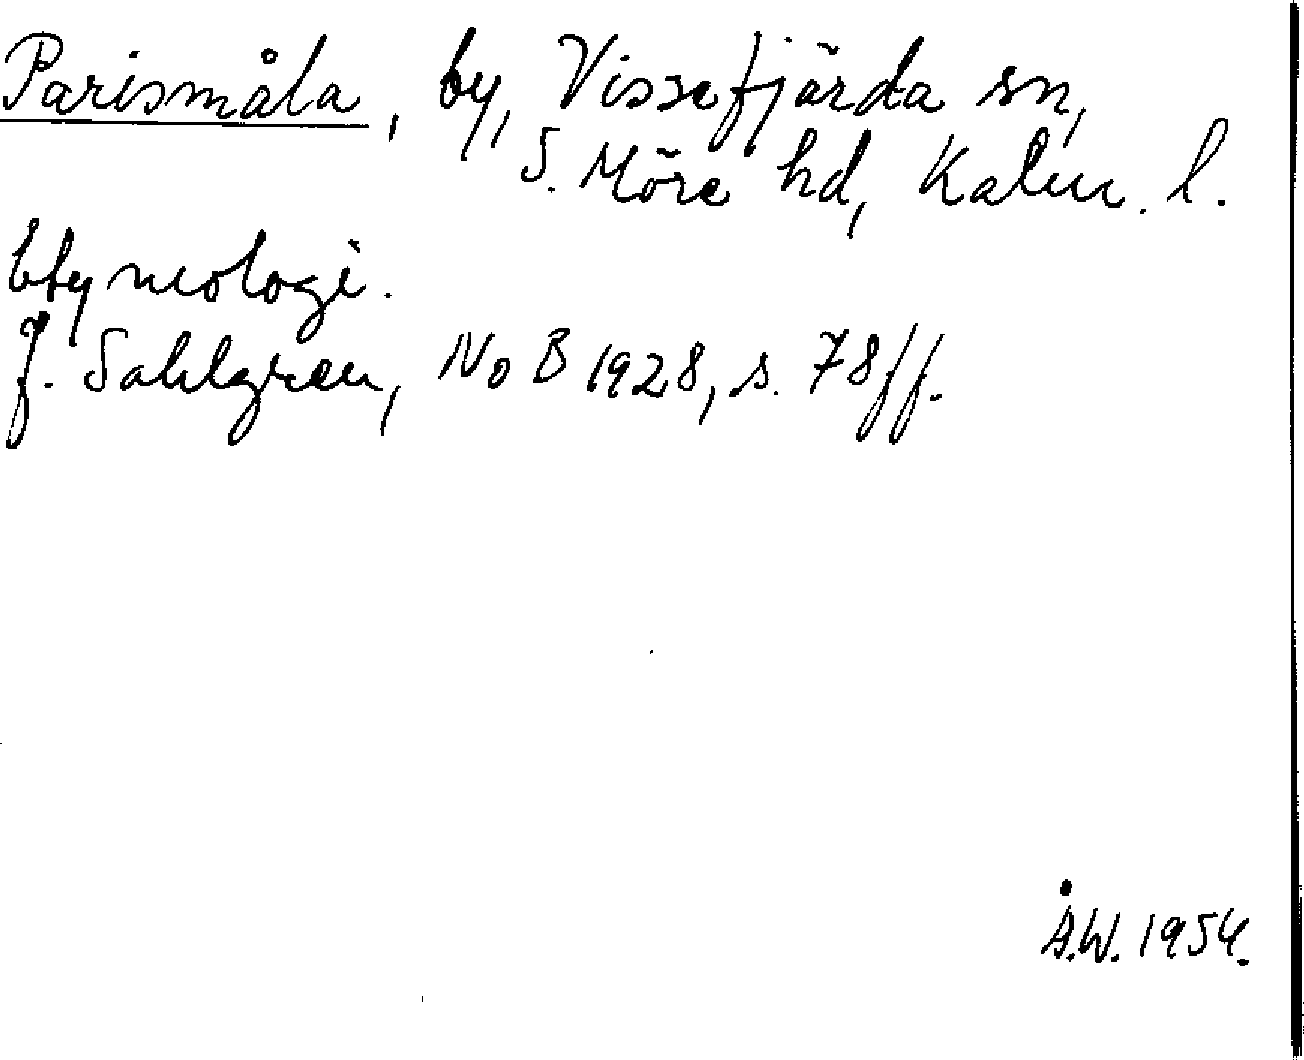 Parismåla, by, Vissefjärda sn,
S. Möre hd, Kalm. l.
Etymologi.
J. Sahlgren, NoB 1928, s. 78 ff.
Å.W. 1954.